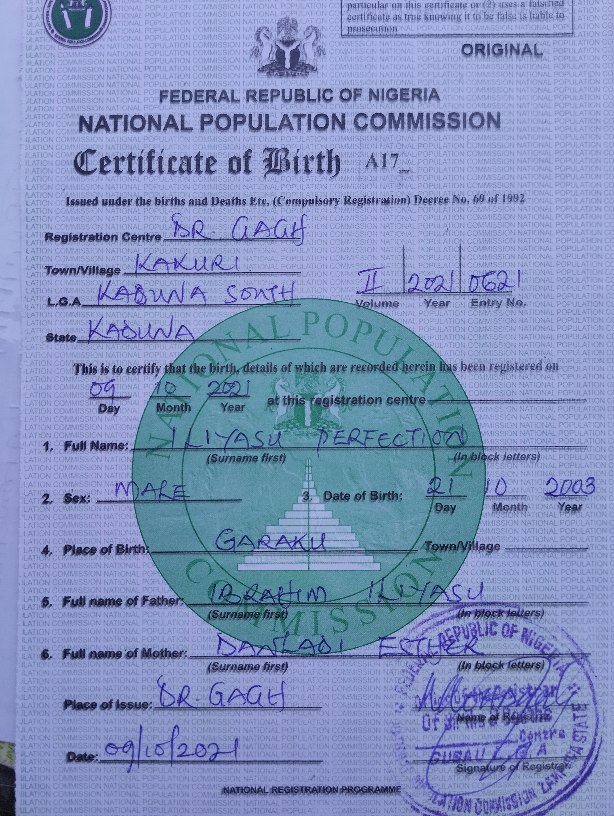 particular on this certificate or (2) uses a falsified
certificate as true knowing it to be false is liable to
prosecution
ORIGINAL
FEDERAL REPUBLIC OF NIGERIA
NATIONAL POPULATION COMMISSION
Certificate of Birth A17
Issued under the births and Deaths Etc, (Compulsory Registration) Decree No. 69 of 1992
Registration Centre DR. GAGH
Town/Village KAKURI
L.G.A KADUNA SOUTH
II 2021 0621
Volume Year Entry No.
State KADUNA
This is to certify that the birth, details of which are recorded herein has been registered on
09 10 2021 at this registration centre
Day Month Year
1. Full Name: ILIYASU PERFECTION
(Surname first) (In block letters)
2. Sex: MALE 3. Date of Birth: 21 10 2003
Day Month Year
4. Place of Birth: GARAKU Town/Village
5. Full name of Father: IBRAHIM ILIYASU
(Surname first) (In block letters)
6. Full name of Mother: DANLADI ESTHER
(Surname first) (In block letters)
Place of Issue: DR. GAGH
Name of Registrar
Date: 09/10/2021
Signature of Registrar
NATIONAL REGISTRATION PROGRAMME
NATIONAL POPULATION COMMISSION
REPUBLIC OF NIGERIA